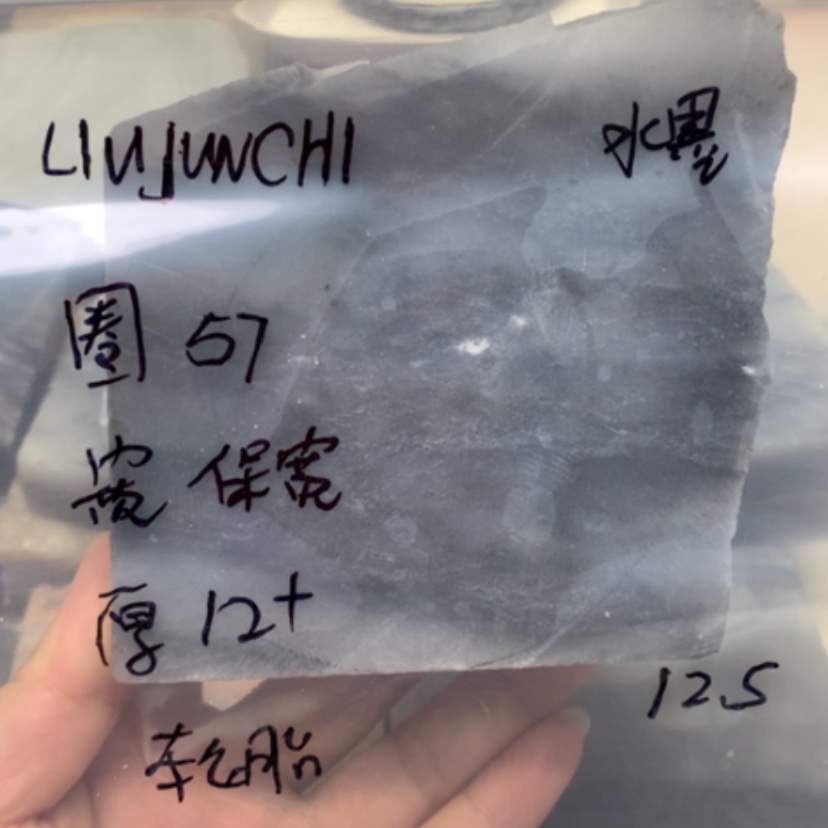 LIUJUNCHI
水墨
圈 57
宽 保宽
厚 12+
12.5